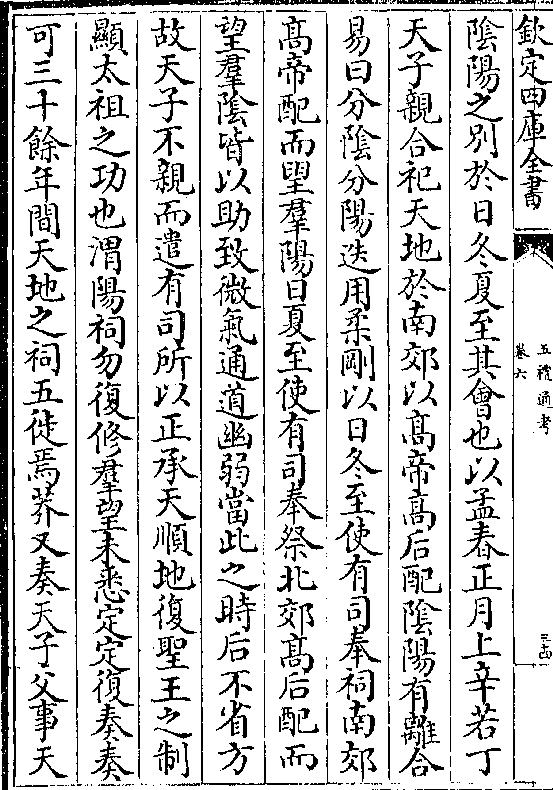 欽定四庫全書
五禮通考
卷六
三十四
陰陽之别於日冬夏至其會也以孟春正月上辛若丁
天子親合祀天地於南郊以髙帝髙后配陰陽有離合
易曰分陰分陽迭用柔剛以日冬至使有司奉祠南郊
髙帝配而望羣陽日夏至使有司奉祭北郊髙后配而
望羣陰皆以助致微氣通道幽弱當此之時后不省方
故天子不親而遣有司所以正承天順地復聖王之制
顯太祖之功也渭陽祠勿復修羣望未悉定定復奏奏
可三十餘年間天地之祠五徙焉莽又奏天子父事天